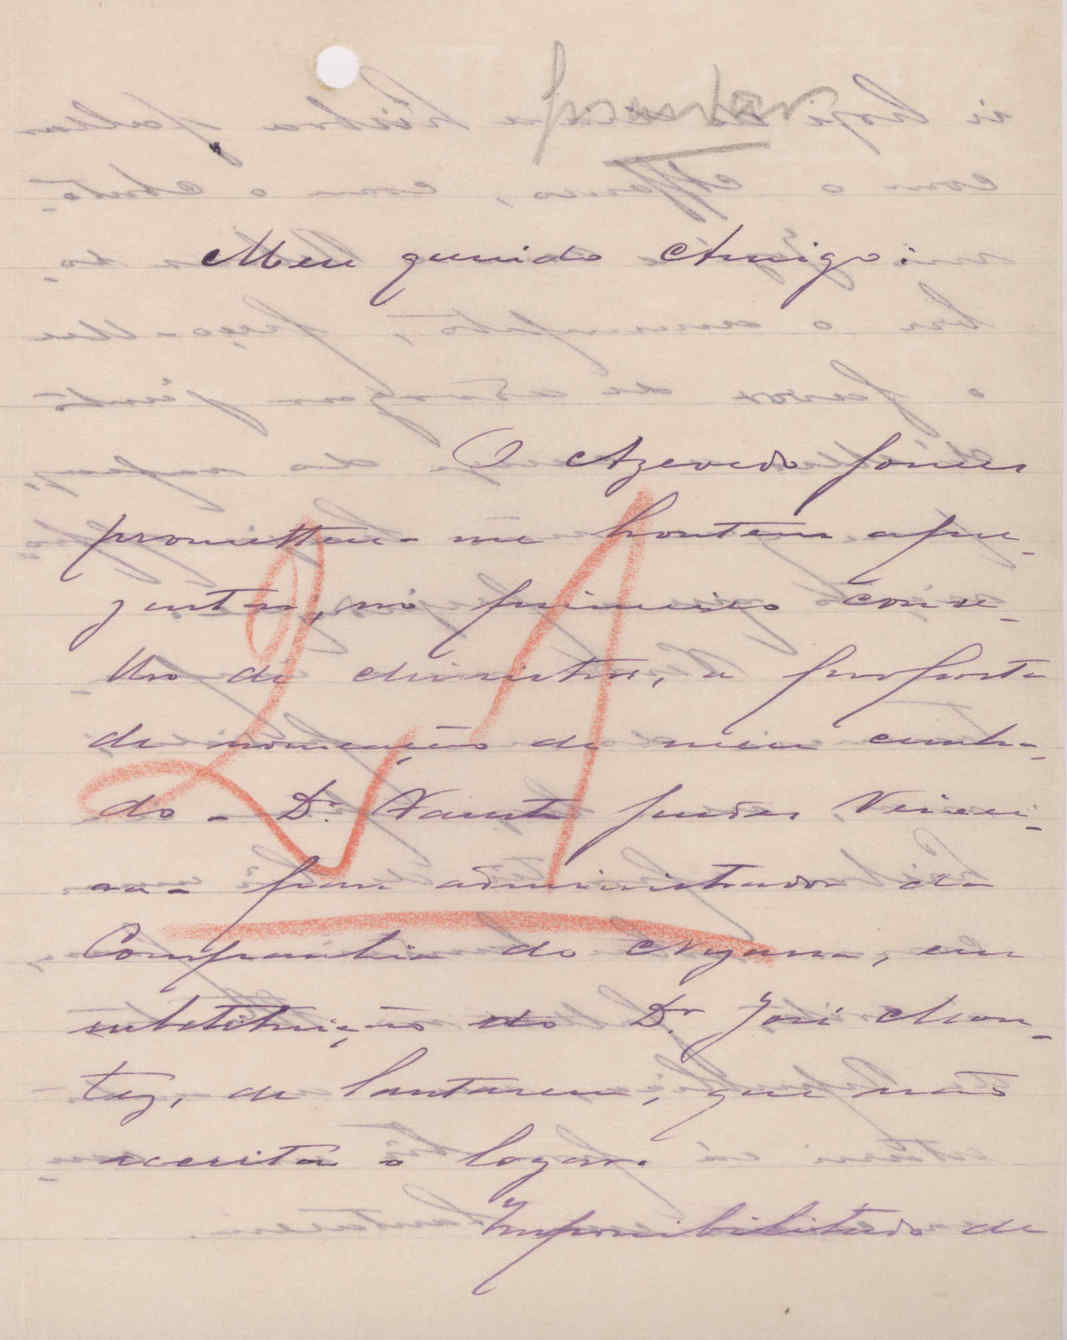 Meu querido Amigo:
O Azevedo Gomes
prometteu-me hontem apre-
zentar, no primeiro conse-
lho de ministros, a proposta
de nomeação de meu cunha-
do - Dr.
sa - para administrador da
Companhia do Nyassa, em
substituição do Dr. José Mon-
tez, de Santarem, que não
acceita o logar.
Impossibilitado de
21